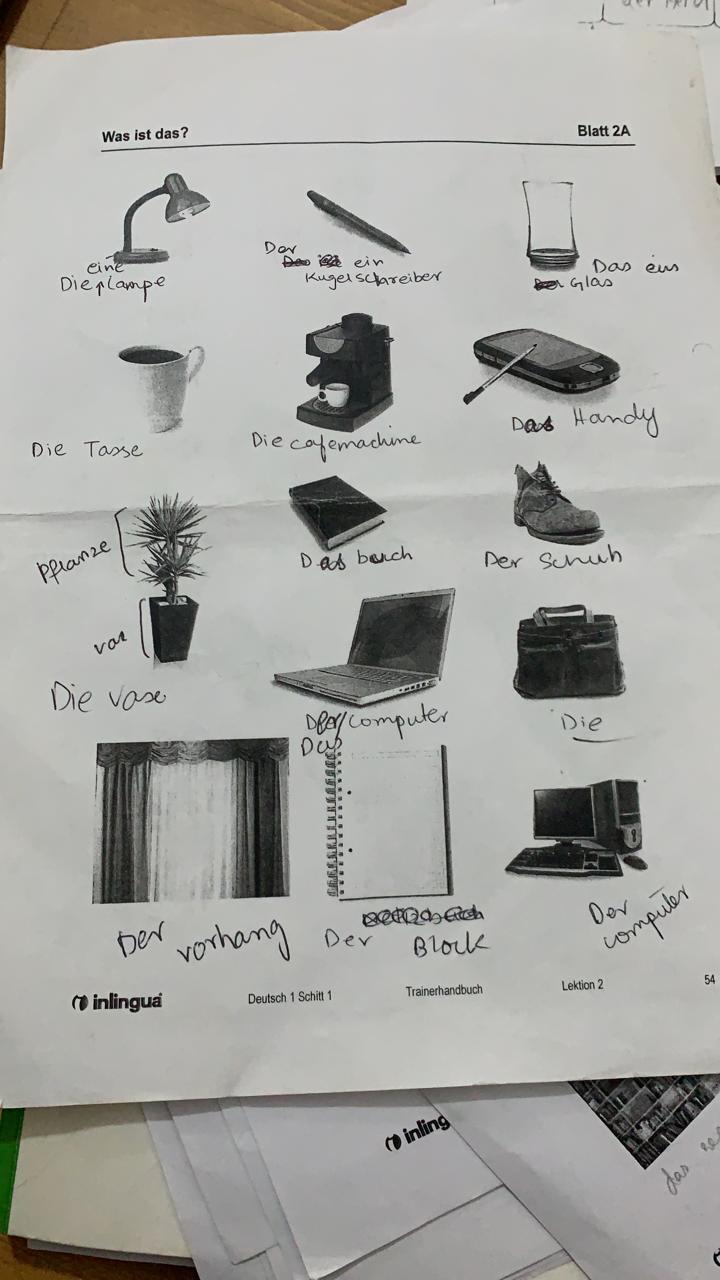 Was ist das?
Blatt 2A
eine
Die Lampe
Der
ein
Kugelschreiber
Das ein
Glas
Die Tasse
Die cafemachine
Das Handy
Pflanze
vas
Die vase
Das buch
Der Schuh
Der/computer
Das
Die
Der vorhang
Der Block
Der
computer
inlingua
Deutsch 1 Schitt 1
Trainerhandbuch
Lektion 2
54
inling
das